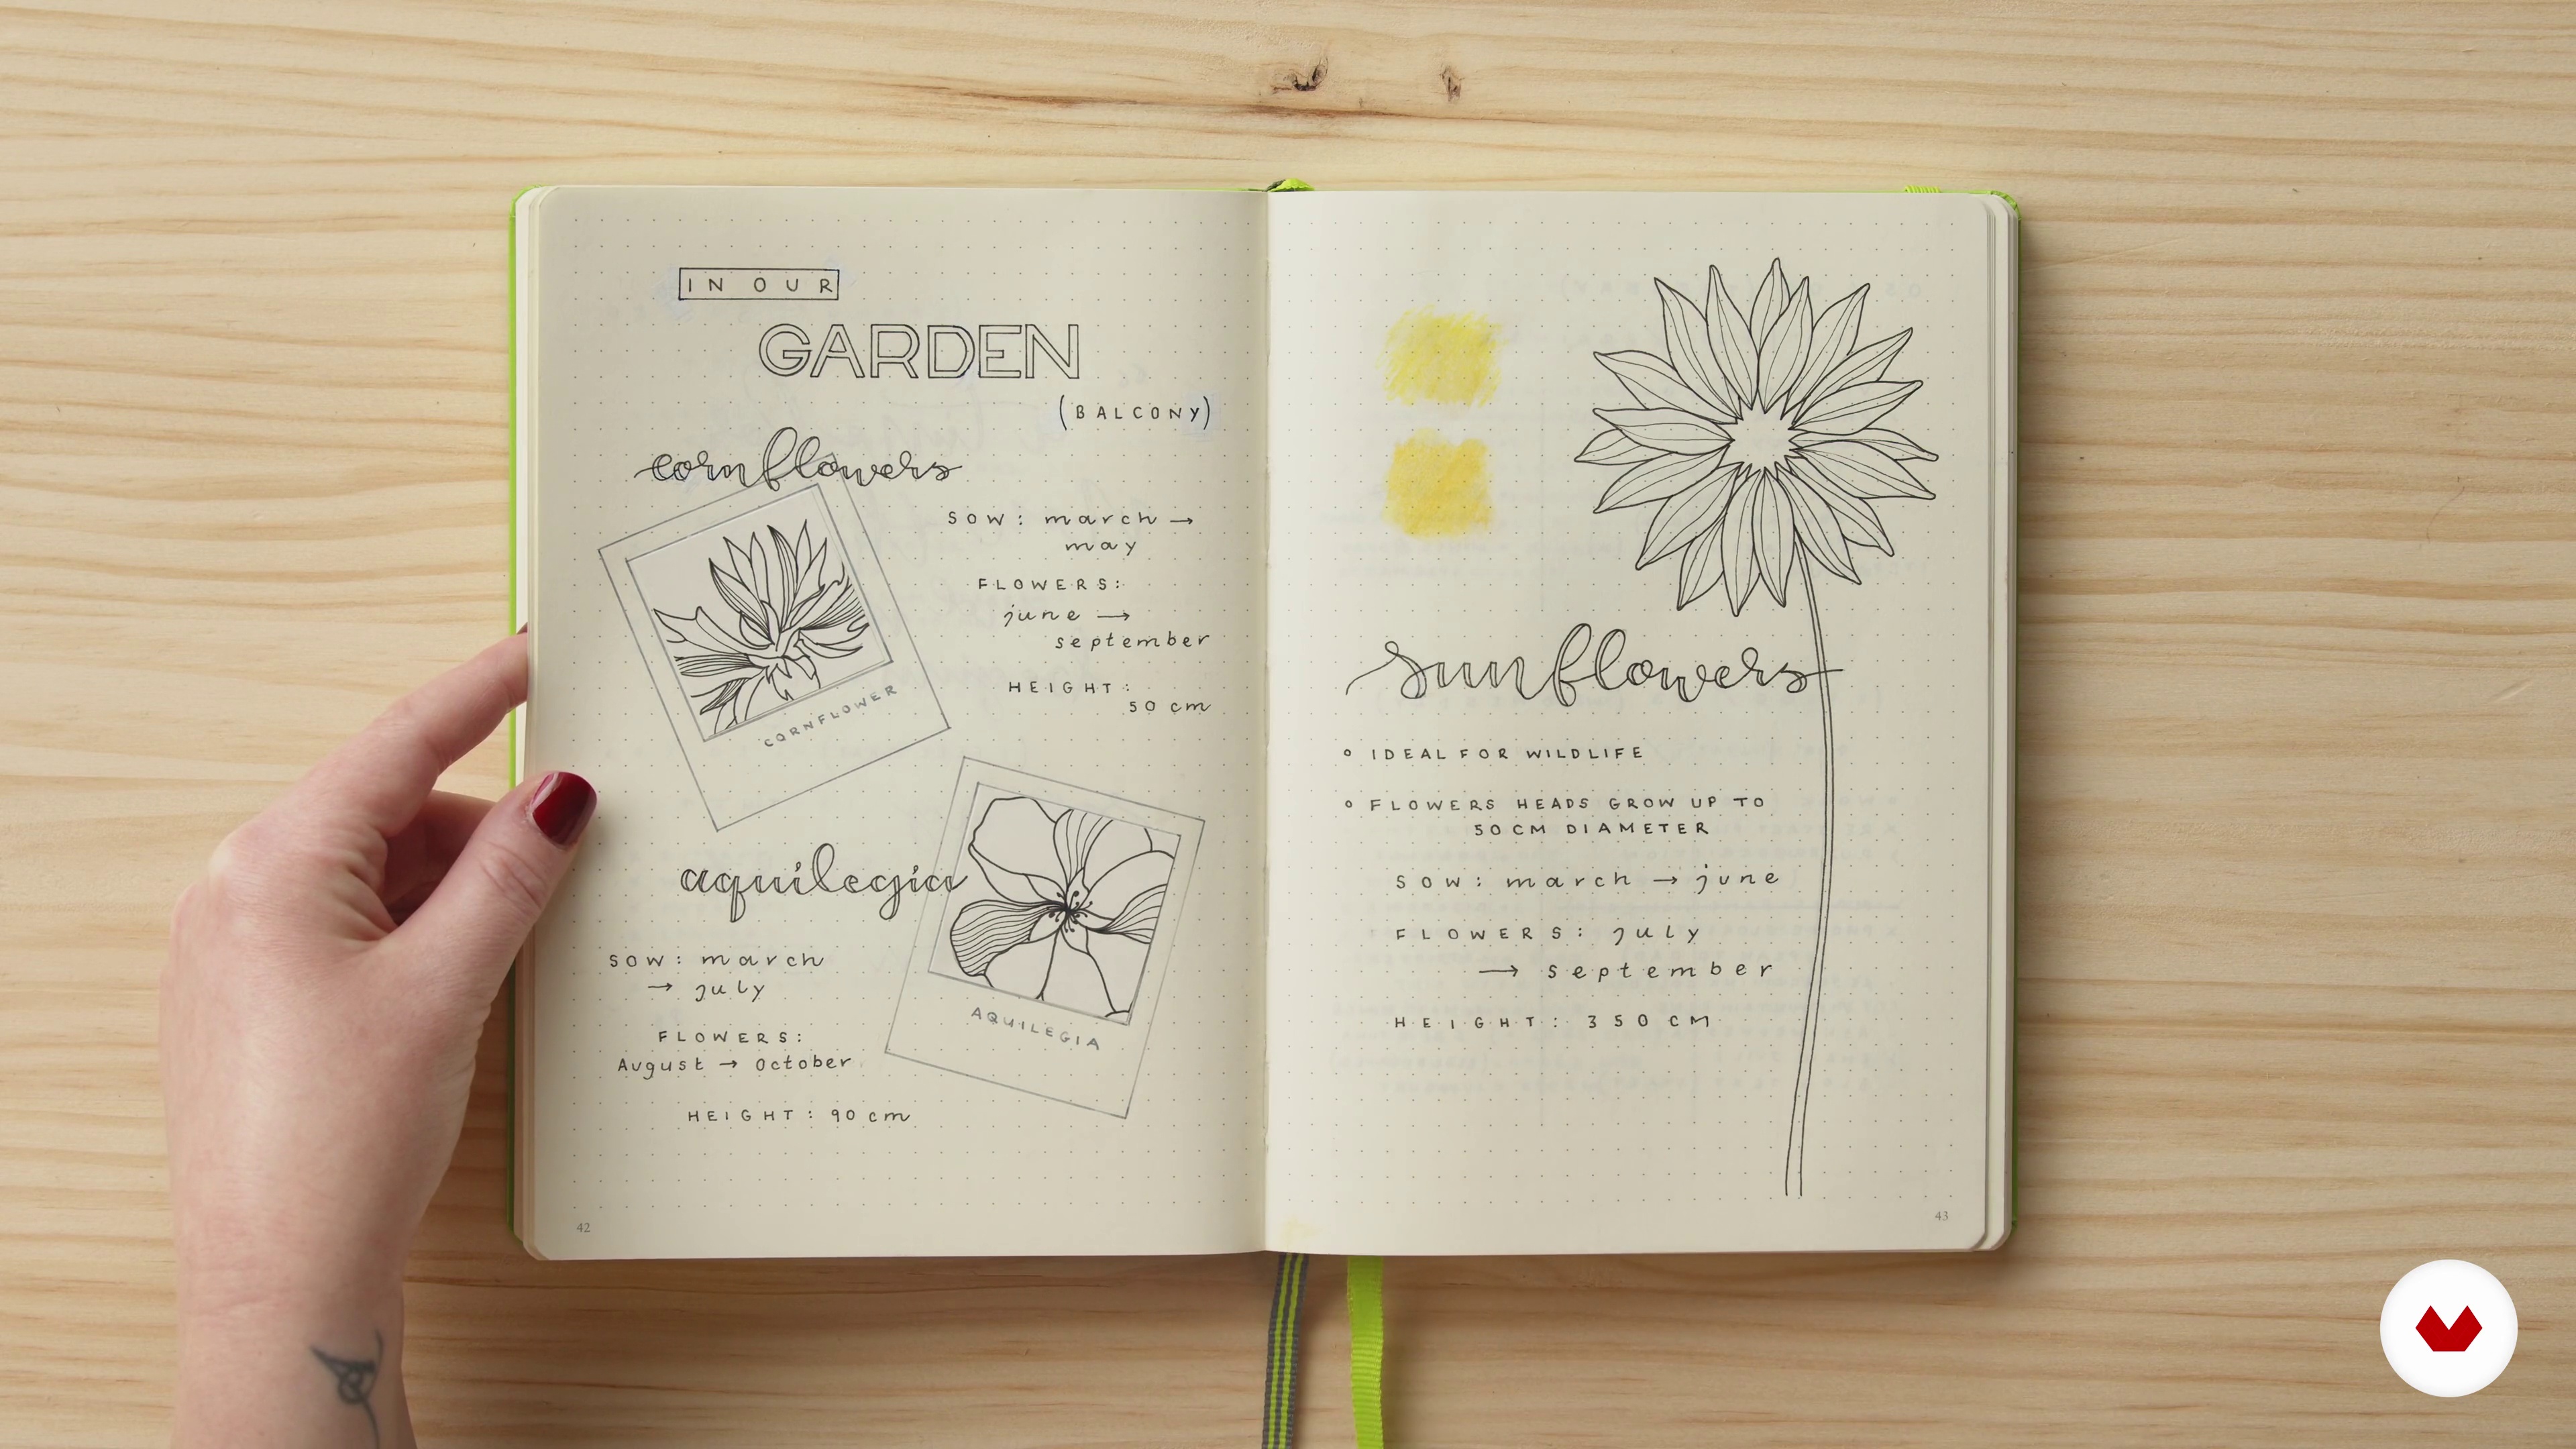 IN OUR
GARDEN
(BALCONY)
cornflowers
SOW: march →
may
FLOWERS:
june →
september
HEIGHT:
50 cm
CORNFLOWER
aquilegia
SOW: march
→ july
FLOWERS:
August → October
HEIGHT: 90 cm
AQUILEGIA
42
sunflowers
° IDEAL FOR WILDLIFE
° FLOWERS HEADS GROW UP TO
50CM DIAMETER
SOW: march → june
FLOWERS: july
→ september
HEIGHT: 350 CM
43